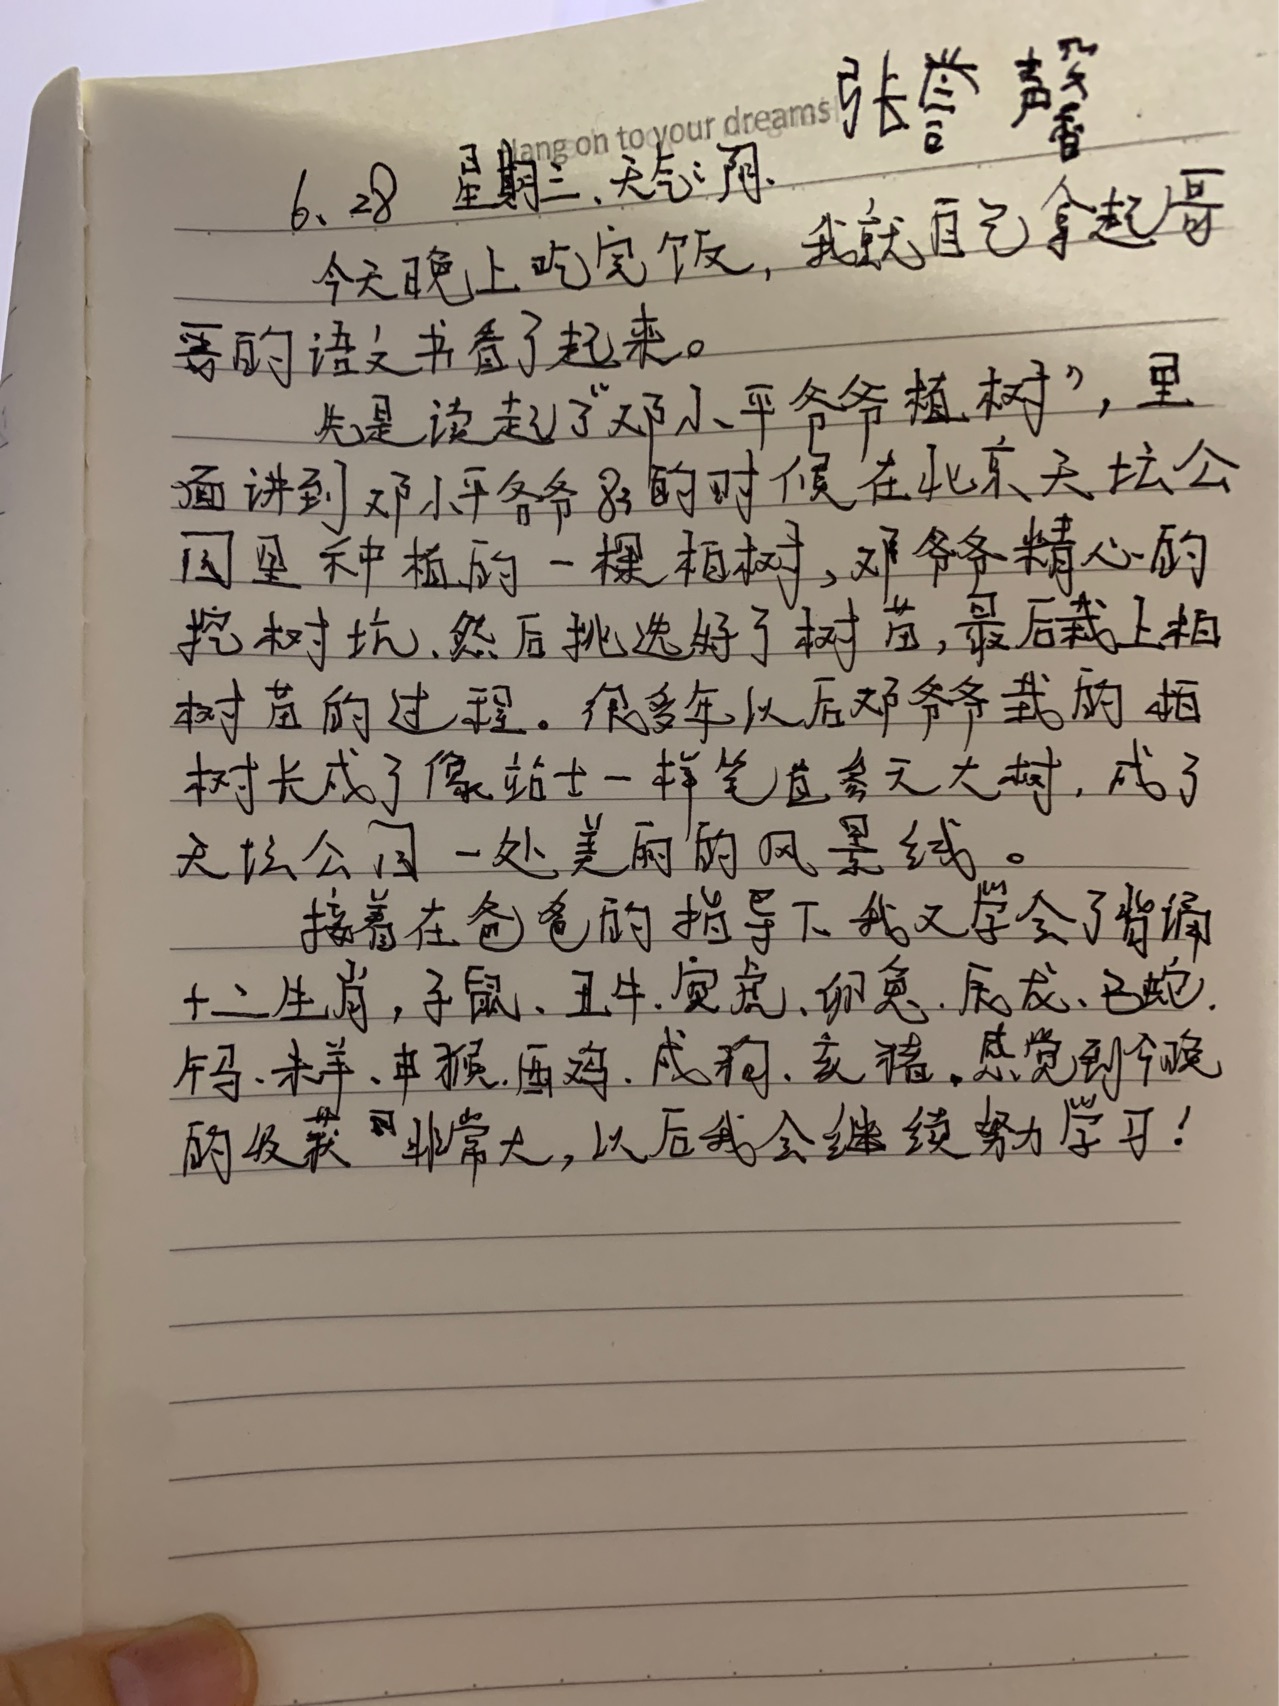 张誉馨
Hang on to your dreams
6、28 星期三、天气:雨.
今天晚上吃完饭，我就自己拿起哥
哥的语文书看了起来。
先是读起了“邓小平爷爷植树”，里
面讲到邓小平爷爷83的时候在北京天坛公
园里种植的一棵柏树，邓爷爷精心的
挖树坑、然后挑选好了树苗，最后栽上柏
树苗的过程。很多年以后邓爷爷栽的柏
树长成了像站士一样笔直参天大树，成了
天坛公园一处美丽的风景线。
接着在爸爸的指导下我又学会了背诵
十二生肖，子鼠、丑牛、寅虎、卯兔、辰龙、巳蛇、
午马、未羊、申猴、酉鸡、戌狗、亥猪。感觉到今晚
的收获 非常大，以后我会继续努力学习！